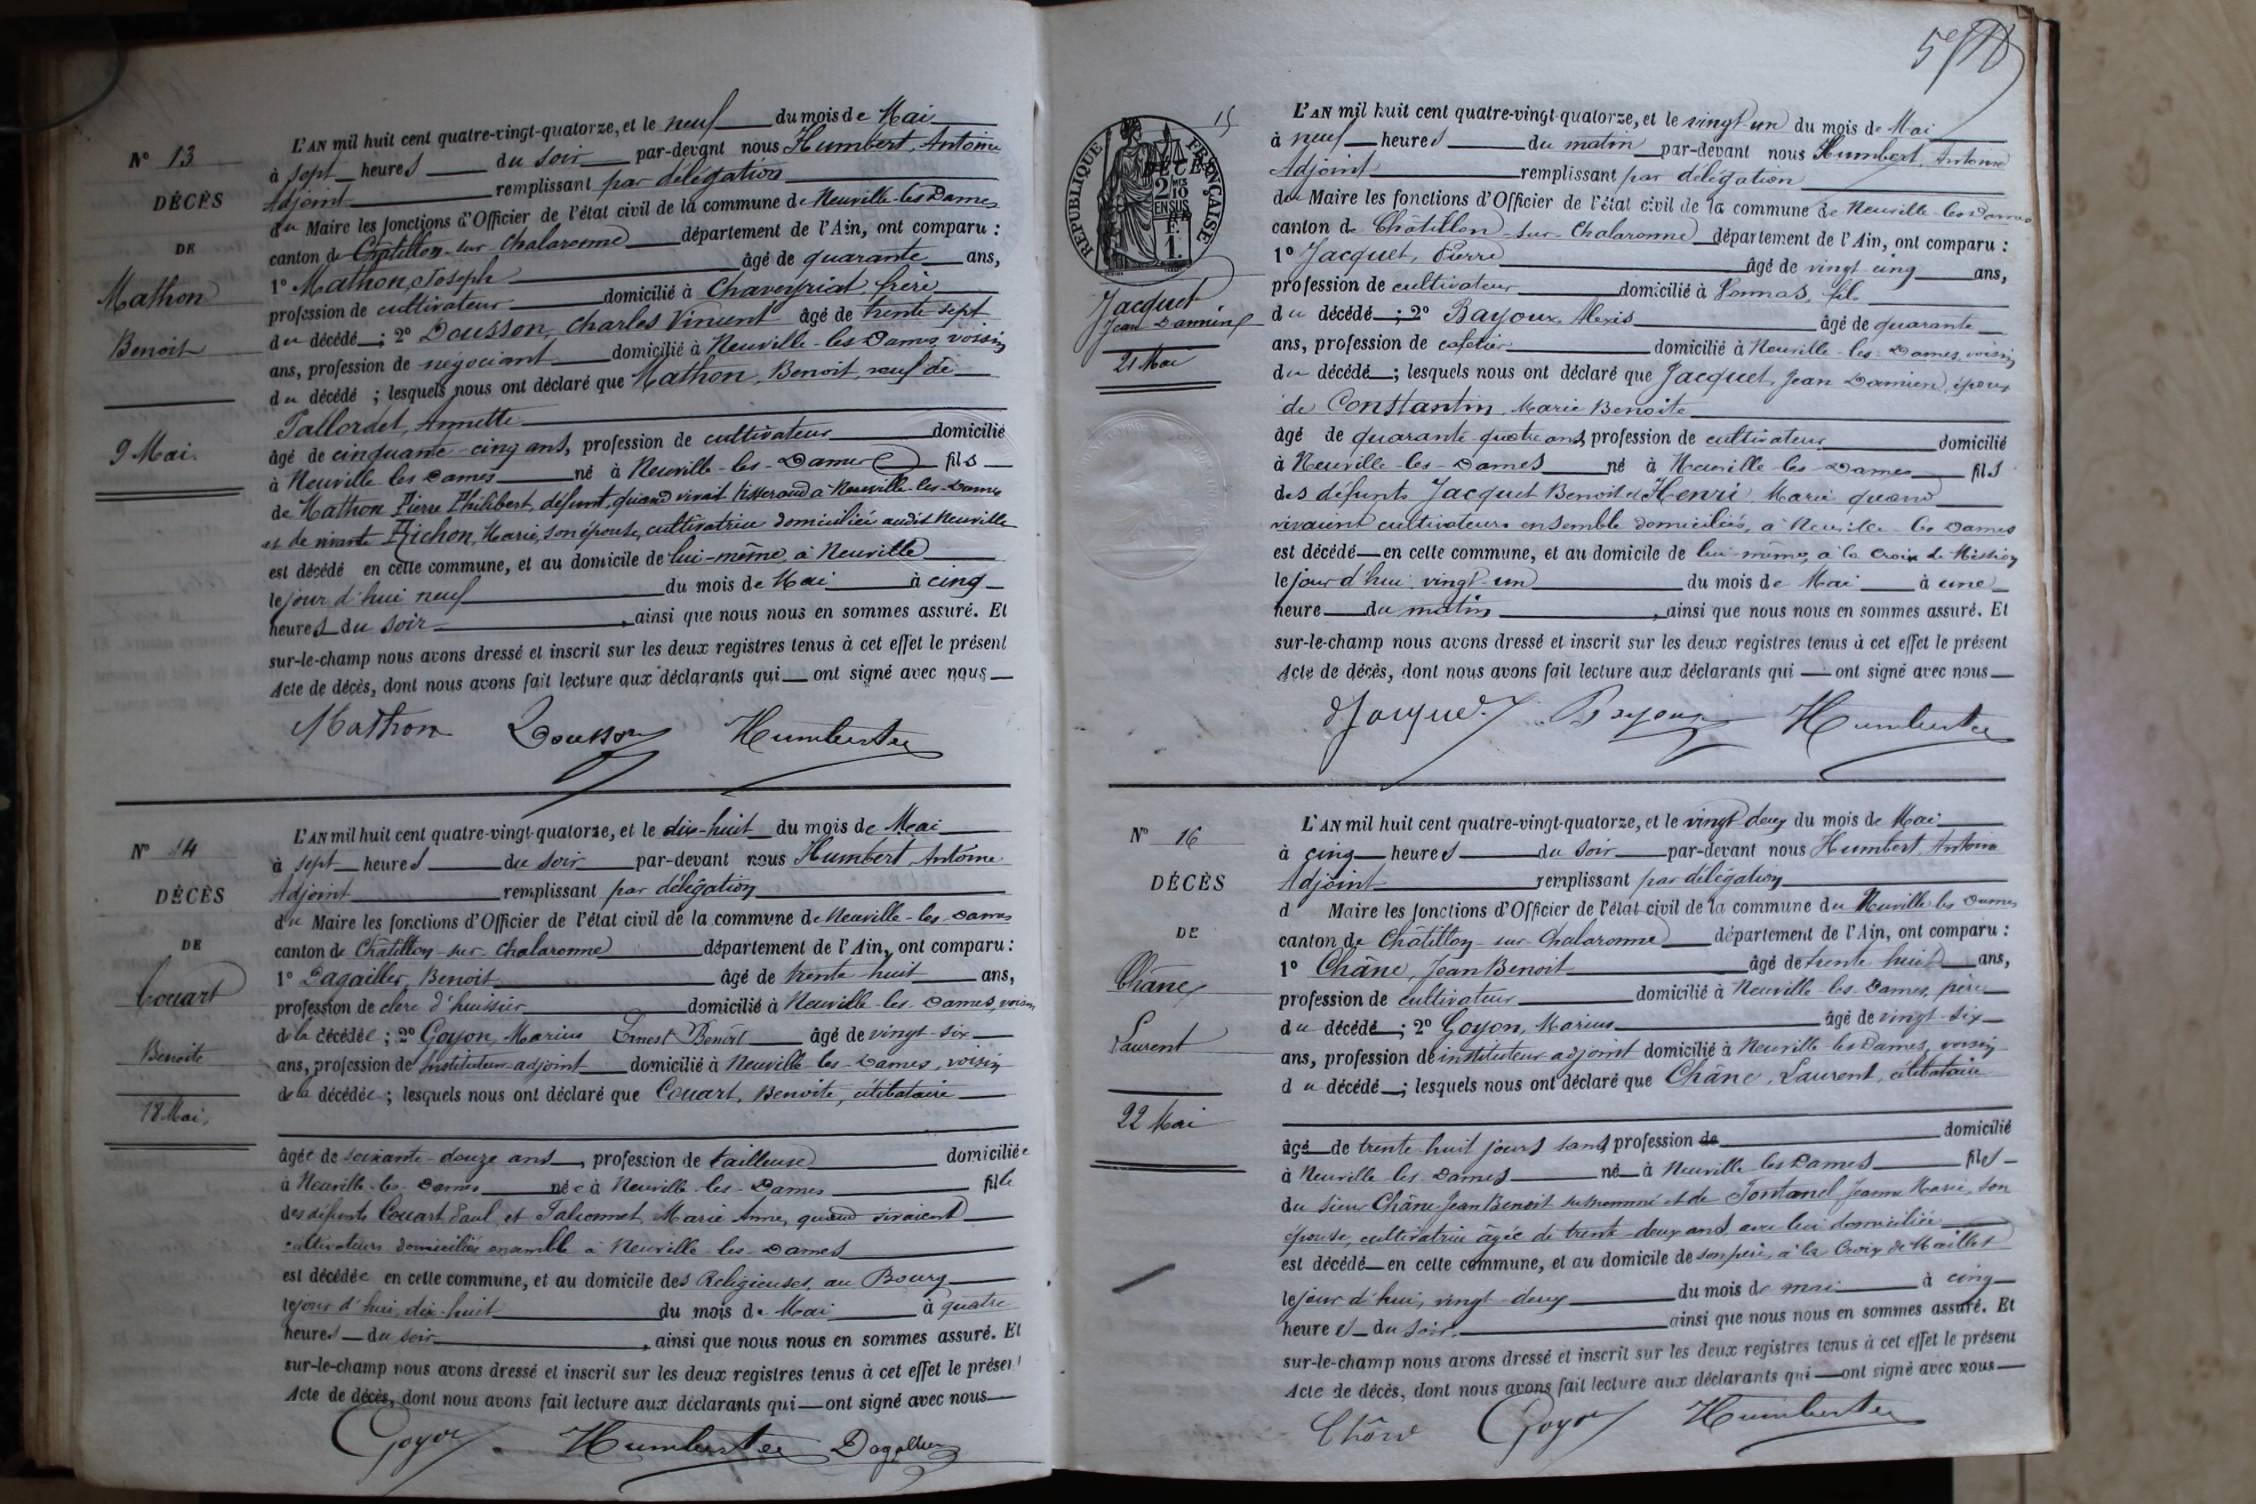 N° 13
DÉCÈS
DE
Mathon
Benoit
9 Mai.
L'AN mil huit cent quatre-vingt-quatorze, et le neuf du mois de Mai
à sept heures du soir par-devant nous Humbert, Antoine
Adjoint remplissant par délégation
du Maire les fonctions d'Officier de l'état civil de la commune de Neuville-les-Dames
canton de Châtillon-sur-Chalaronne département de l'Ain, ont comparu :
1° Mathon Joseph âgé de quarante ans,
profession de cultivateur domicilié à Chaveyriat, frère
du décédé ; 2° Dousson, Charles Vincent âgé de trente-sept
ans, profession de négociant domicilié à Neuville-les-Dames, voisin
du décédé ; lesquels nous ont déclaré que Mathon, Benoit, veuf de
Pallordet, Annette
âgé de cinquante-cinq ans, profession de cultivateur domicilié
à Neuville les Dames né à Neuville-les-Dames fils
de Mathon Pierre Philibert, défunt, quand vivait tisserand à Neuville-les-Dames
et de vivante Michon, Marie, son épouse, cultivatrice domiciliée audit Neuville
est décédé en cette commune, et au domicile de lui-même, à Neuville
le jour d'hui neuf du mois de Mai à cinq
heures du soir, ainsi que nous nous en sommes assuré. Et
sur-le-champ nous avons dressé et inscrit sur les deux registres tenus à cet effet le présent
Acte de décès, dont nous avons fait lecture aux déclarants qui ont signé avec nous
Mathon Dousson Humbert
N° 14
DÉCÈS
DE
Couart
Benoite
18 Mai.
L'AN mil huit cent quatre-vingt-quatorze, et le dix-huit du mois de Mai
à sept heures du soir par-devant nous Humbert, Antoine
Adjoint remplissant par délégation
du Maire les fonctions d'Officier de l'état civil de la commune de Neuville-les-Dames
canton de Châtillon-sur-Chalaronne département de l'Ain, ont comparu :
1° Dagallier, Benoit âgé de trente-huit ans,
profession de clerc d'huissier domicilié à Neuville-les-Dames, voisin
de la décédée ; 2° Goyon, Marius Ernest Benoît âgé de vingt-six
ans, profession de Instituteur-adjoint domicilié à Neuville les-Dames, voisin
de la décédée ; lesquels nous ont déclaré que Couart, Benoite, célibataire
âgée de soixante-douze ans, profession de tailleuse domiciliée
à Neuville-les-Dames née à Neuville-les-Dames fille
des défunts Couart Paul, et Marie Anne, quand vivaient
cultivateurs domiciliés ensemble à Neuville-les-Dames
est décédée en cette commune, et au domicile des Religieuses, au Bourg
le jour d'hui, dix-huit du mois de Mai à quatre
heures du soir, ainsi que nous nous en sommes assuré. Et
sur-le-champ nous avons dressé et inscrit sur les deux registres tenus à cet effet le présent
Acte de décès, dont nous avons fait lecture aux déclarants qui ont signé avec nous
Goyon Humbert Dagallier
15
RÉPUBLIQUE FRANÇAISE
DÉCÈS
2 MES 10 EN SUS
F. 1.
Jacquet
Jean Damien
21 Mai
L'AN mil huit cent quatre-vingt-quatorze, et le vingt-un du mois de Mai
à neuf heures du matin par-devant nous Humbert, Antoine
Adjoint remplissant par délégation
du Maire les fonctions d'Officier de l'état civil de la commune de Neuville-les-Dames
canton de Châtillon-sur-Chalaronne département de l'Ain, ont comparu :
1° Jacquet, Pierre âgé de vingt cinq ans,
profession de cultivateur domicilié à Vonnas, fils
du décédé ; 2° Bayoux, Alexis âgé de quarante
ans, profession de cafetier domicilié à Neuville-les-Dames, voisin
du décédé ; lesquels nous ont déclaré que Jacquet, Jean Damien, époux
de Constantin, Marie Benoite
âgé de quarante-quatre ans, profession de cultivateur domicilié
à Neuville-les-Dames né à Neuville-les-Dames fils
des défunts Jacquet Benoit et Henri Marie quand
vivaient cultivateurs ensemble domiciliés, à Neuville-les-Dames
est décédé en cette commune, et au domicile de lui-même, à la Croix de Mission
le jour d'hui vingt-un du mois de Mai à une
heure du matin, ainsi que nous nous en sommes assuré. Et
sur-le-champ nous avons dressé et inscrit sur les deux registres tenus à cet effet le présent
Acte de décès, dont nous avons fait lecture aux déclarants qui ont signé avec nous
Jacquet Bayoux Humbert
N° 16
DÉCÈS
DE
Châne
Laurent
22 Mai
L'AN mil huit cent quatre-vingt-quatorze, et le vingt-deux du mois de Mai
à cinq heures du soir par-devant nous Humbert, Antoine
Adjoint remplissant par délégation
d Maire les fonctions d'Officier de l'état civil de la commune du Neuville les Dames
canton de Châtillon-sur-Chalaronne département de l'Ain, ont comparu :
1° Châne, Jean Benoit âgé de trente huit ans,
profession de cultivateur domicilié à Neuville-les-Dames, père
du décédé ; 2° Goyon, Marius âgé de vingt-six
ans, profession de instituteur adjoint domicilié à Neuville-les-Dames, voisin
du décédé ; lesquels nous ont déclaré que Châne, Laurent, célibataire
âgé de trente-huit jours sans profession de domicilié
à Neuville les Dames né à Neuville les Dames fils
du sieur Châne Jean Benoit susnommé et de Fontanel Jeanne Marie, son
épouse, cultivatrice âgée de trente-deux ans, avec lui domiciliée
est décédé en cette commune, et au domicile de son père, à la Croix de Maillet
le jour d'hui, vingt-deux du mois de mai à cinq
heures du soir, ainsi que nous nous en sommes assuré. Et
sur-le-champ nous avons dressé et inscrit sur les deux registres tenus à cet effet le présent
Acte de décès, dont nous avons fait lecture aux déclarants qui ont signé avec nous
Châne Goyon Humbert